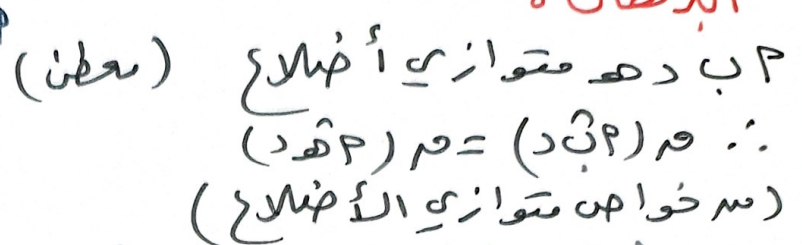 البرهان :
م ب د هـ متوازي أضلاع (معطى)
∴ م (م ب̂ د) = م (م هـ̂ د)
(من خواص متوازي الأضلاع)